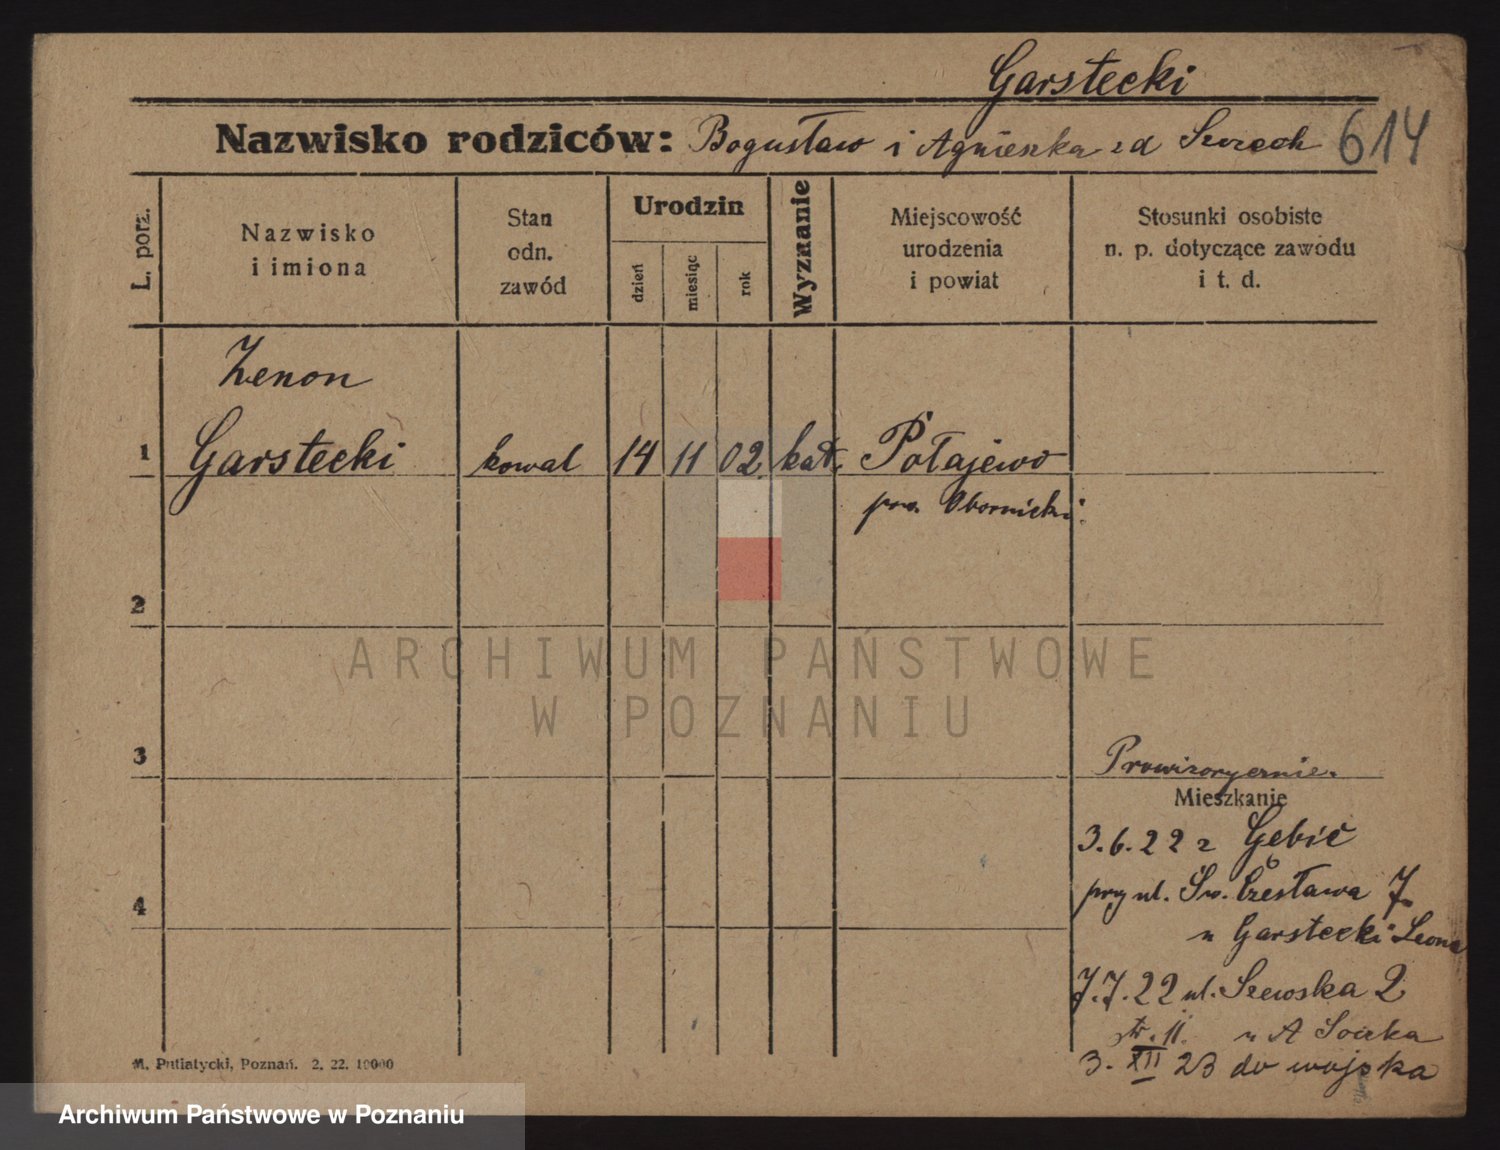 Garstecki
Nazwisko rodziców: Bogusław i Agnieszka z d 614
L. porz.
Nazwisko
i imiona
Stan
odn.
zawód
Urodzin
dzień
miesiąc
rok
Wyznanie
Miejscowość
urodzenia
i powiat
Stosunki osobiste
n. p. dotyczące zawodu
i t. d.
Zenon
1 Garstecki kowal 14 11 02 kat. Połajewo
pow. Obornicki.
2
ARCHIWUM PAŃSTWOWE
W POZNANIU
3
Prowizorycznie.
Mieszkanie
3.6.22 z Gębic
4
przy ul. Św. Czesława 7
u Garstecki Leona
7.7.22 ul. Szewska 2
tr. II. u A
3. XII 23 do wojska
M. Putiatycki, Poznań. 2, 22. 10000
Archiwum Państwowe w Poznaniu